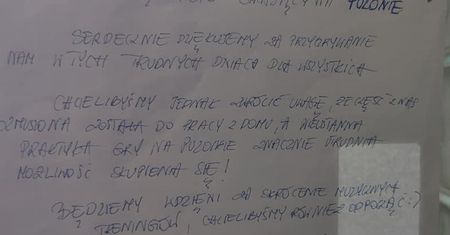 PUZONIE
SERDECZNIE DZIĘKUJEMY ZA PRZYGRYWANIE
NAM W TYCH TRUDNYCH DNIACH DLA WSZYSTKICH
CHCIELIBYŚMY JEDNAK ZWRÓCIĆ UWAGĘ, ŻE CZĘŚĆ Z NAS
ZMUSZONA ZOSTAŁA DO PRACY Z DOMU, A NIEUSTANNA
PRAKTYKA GRY NA PUZONIE ZNACZNIE UTRUDNIA
MOŻLIWOŚĆ SKUPIENIA SIĘ!
BĘDZIEMY WDZIĘCZNI ZA SKRÓCENIE MUZYCZNYCH
TRENINGÓW, CHCIELIBYŚMY RÓWNIEŻ ODPOCZĄĆ :)